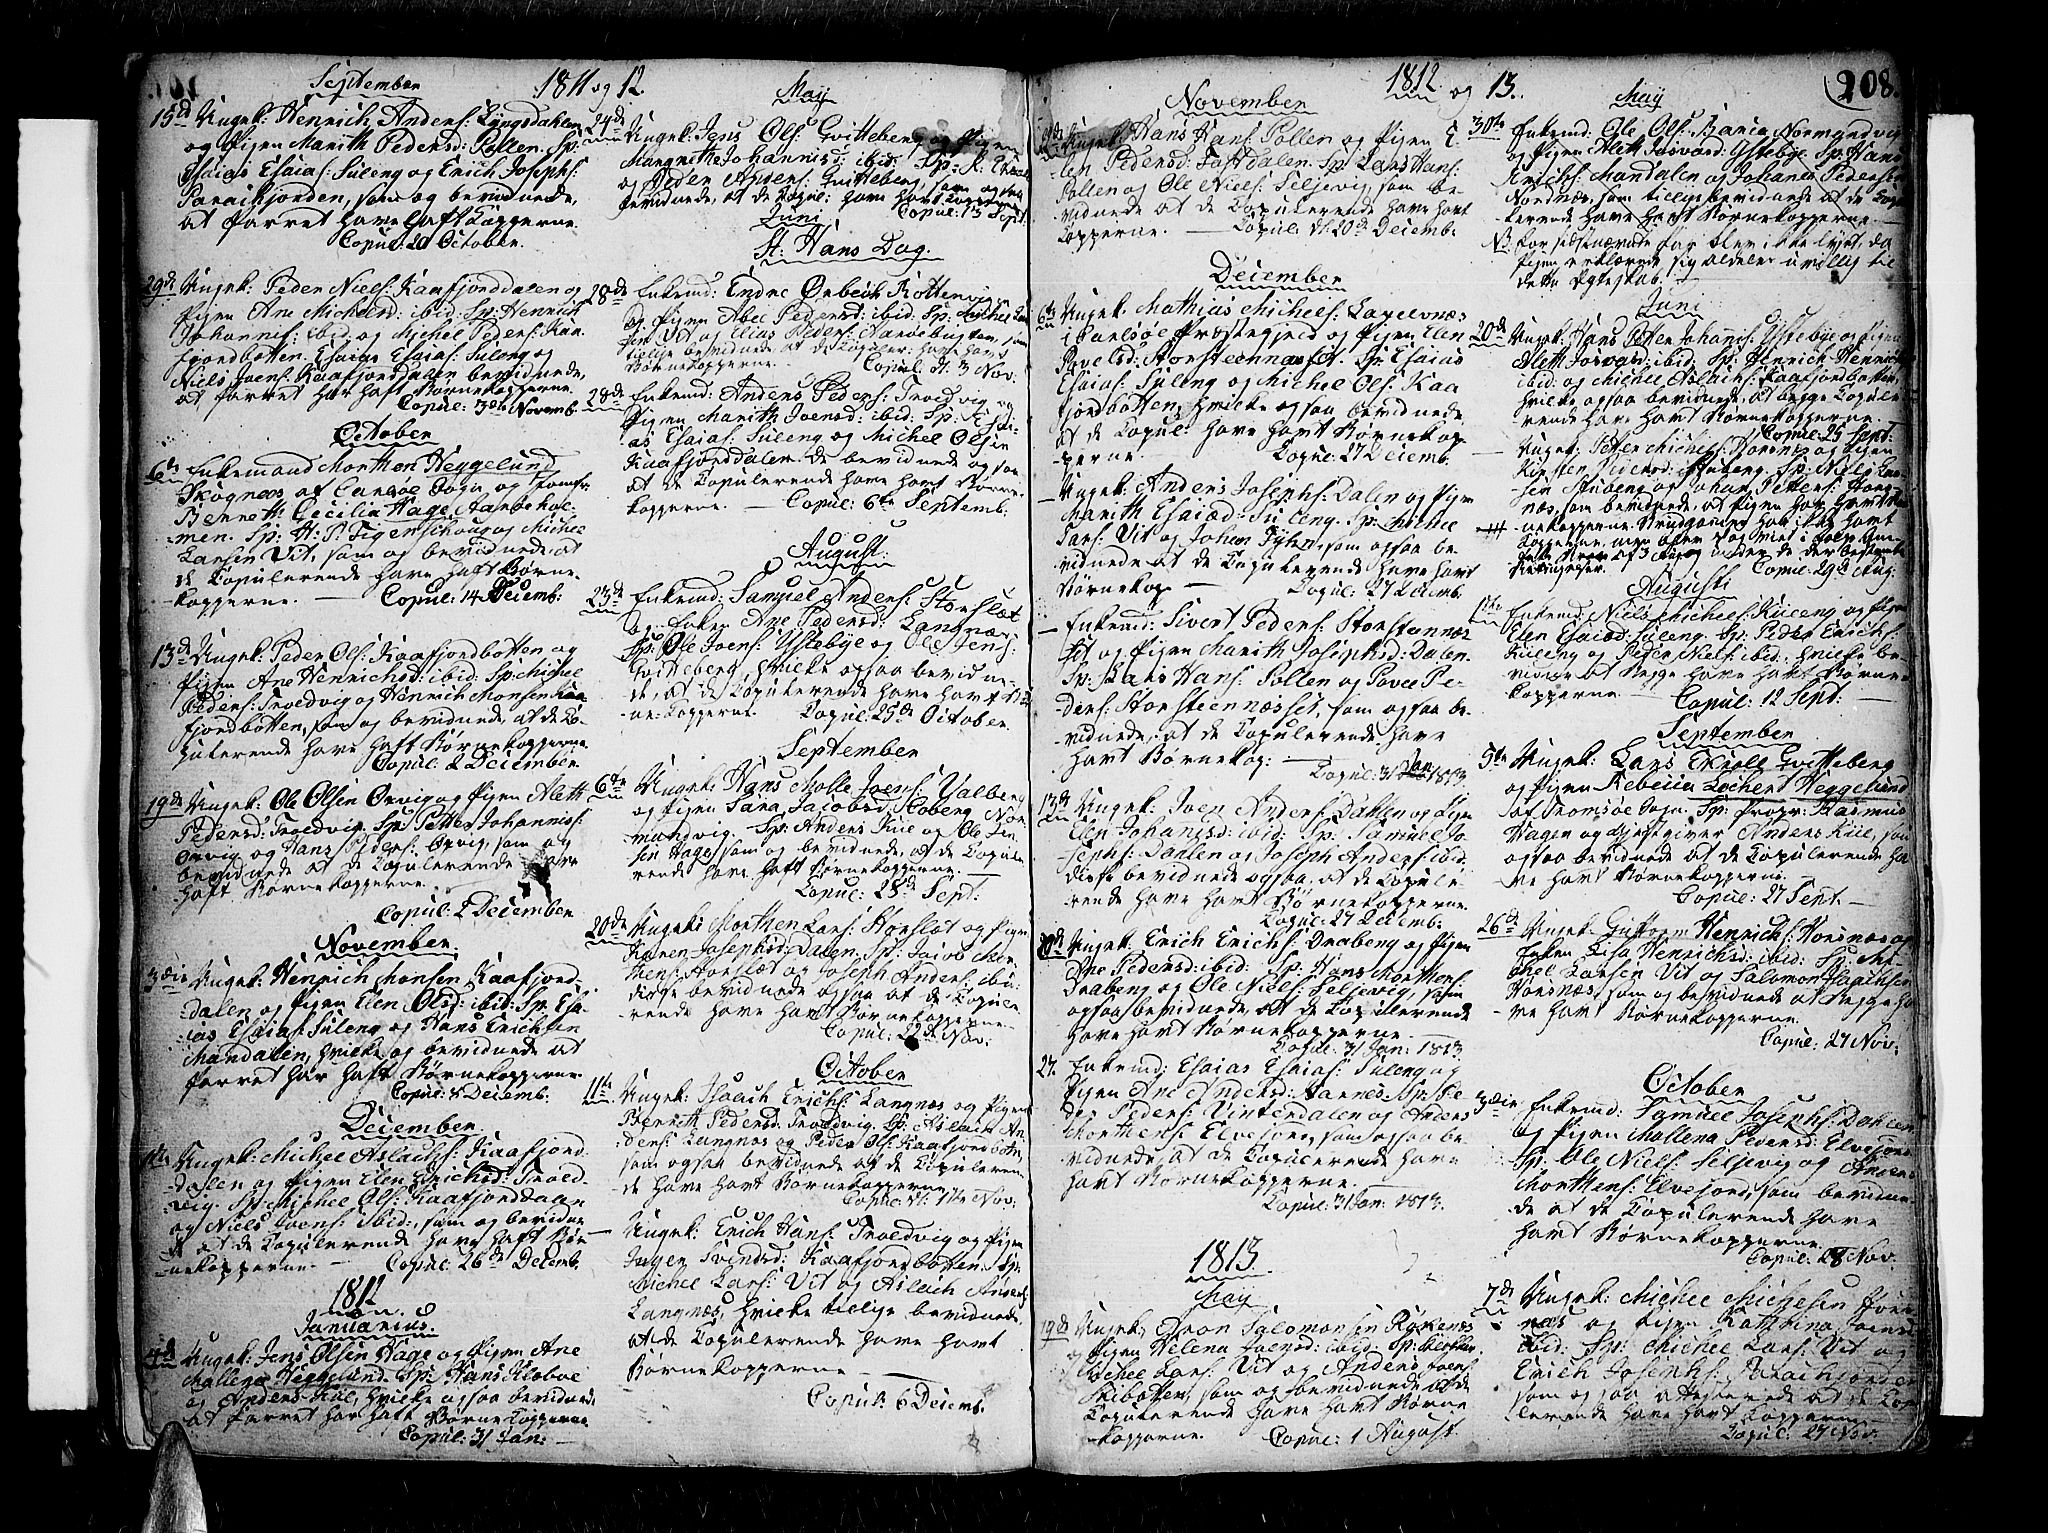 September
1811 og 12.
15de Ungek: Henrich Anders: Lyngsdahlen
og Pigen Marith Pedersd: Pollen. Sp:
Esaias Esaias: Süleng og Erich Josephs:
Paraisfjorden, som og bevidnede,
at Parret have haft Kopperne.
Copul: 20 October.
29de Ungek: Peder Niels: Kaafjorddalen og
Pigen Ane Michelsd: ibid: Sp: Henrich
Johannis: ibid og Michel Peders: Kaa-
fjordbotten. Esaias Esaias: Süleng og
Niels Joens: Kaafjorddalen bevidnede,
at Parret har haft Børnekopperne.
Copul: 3de Novemb.
October
6te Enkemand Morthen Heggelund
Skognæs af Carlsøe Sogn og Jomfr
Benneth Cecilia Hage Aarøehol-
men. Sp: H: P: Figenschoug og Michel
Larsen Vit, som og bevidnede at
de Copulerende have haft Børne-
kopperne. — Copul: 14 Decemb:
13de Ungek: Peder Ols: Kaafjordbotten og
Pigen Ane Henrichsd: ibid: Sp: Michel
Peders: Troldvig og Henrich Monsen Kaa-
fjordbotten, som og bevidnede, at de Co-
pulerende have haft Børnekopperne.
Copul: 2 December.
19de Ungek: Ole Olsen Ørvig og Pigen Aleth
Pedersd: Troldvig. Sp: Petter Johannis:
Ørvig og Hans Peders: Ørvig, som og
bevidnede at de Copulerende have
haft Børnekopperne.
Copul: 2 December
November.
3die Ungek: Henrich Monsen Kaafjord-
dalen og Pigen Elen Olsd: ibid: Sp: Esa-
ias Esaias: Süleng og Hans Erichsen
Mandalen, hvilke og bevidnede at
Parret har haft Børnekopperne.
Copul: 8 Decemb.
December
1te Ungek: Michel Aslachs: Kaafjord-
dalen og Pigen Elen Erichsd: Trold-
vig. Sp: Michel Ols: Kaafjorddalen
og Niels Joens: Ibid:, som og bevidne-
de at de Copulerende have haft Bør-
nekopperne. — Copul: 26de Decemb.
1812
Januarius.
Ungek: Jens Olsen Hage og Pigen Ane
Malena Heggelund. Sp: Hans Kloboe
og Anders Kiil, hvilke ogsaa bevidnede
at Parret har haft Børnekopperne.
Copul: 31 Jan: —
May
24de Ungek: Jens Ols: Gvitteberg og Pigen
Margrethe Johannisd: ibid: Sp:
og Peder Anders: Gvitteberg, som og saa
bevidnede, at de Copul: have havt Kopperne
Copul: 13 Sept:
Juni
St. Hans Dag.
28de Enkemd: Endre Ørbech Kottervigen
og Pigen Abel Pedersd: ibid: Sp: Michel Lar-
sen Vit og Elias Peders: Aarøebugten, som
tillige bevidnede at de Copuler: have havt
Børnekopperne. Copul: d: 3 Nov:
28de Enkemd: Anders Peders: Troldvig og
Pigen Marith Joensd: ibid: Sp: Esai-
as Esaias: Süleng og Michel Olsen
Kaafjorddalen. De bevidnede og saa
at de Copulerende have havt Børne-
kopperne. — Copul: 6te Septemb:
August:
23de Enkemd: Samuel Anders: Storslet
og Enken Ane Pedersd: Langnæs.
Sp: Ole Joens: Ystebye og Ole Jens:
Gvitteberg, hvilke ogsaa bevidne-
de, at de Copulerende have havt Bør-
ne-kopperne. Copul: 25de October
September
6te Ungek: Hans Molle Joens: Valberg
og Pigen Sara Jacobsd: Hoberg Nor-
mandvig. Sp: Anders Kiil og Ole Jen-
sen Hage, som og bevidnede, at de Copule-
rende have haft Børnekopperne. —
Copul: 28de Sept:
20de Ungek: Morthen Lars: Horslet og Pigen
Karen Josephsd: Dalen. Sp: Jacob Mor-
thens: Horslæt og Joseph Anders: ibid:
disse bevidnede ogsaa at de Copule-
rende have havt Børnekopperne.
Copul: 22de Nov:
October
11te Ungek: Isach Erichs: Langnæs og Pigen
Berrith Pedersd: Troldvig. Sp: Aslach An-
ders: Langnæs og Peder Ols: Kaafjordbotten,
som ogsaa bevidnede at de Copuleren-
de have havt Børnekopperne.
Copul: d: 1te Nov:
Ungek: Erich Hans: Troldvig og Pigen
Inger Svendsd: Kaafjordbotten. Sp:
Michel Lars: Vit og Aslach Anders:
Langnæs, hvilke tillige bevidnede
at de Copulerende have havt
Børnekopperne.
Copul: 6 Decemb.
1812 og 13.
208.
November
Ungek: Hans Hans: Pollen og Pigen E-
len Pedersd: Fastdalen. Sp: Lars Hans:
Pollen og Ole Niels: Seljevig, som be-
vidnede at de Copulerende have havt
Kopperne. — Copul: d: 20de Decemb:
December
6te Ungek: Mathias Michels: Lavelvnæs
i Carlsøe Præstegjeld og Pigen Elen
Povelsd: Storsteennæsset. Sp: Esaias
Esaias: Süleng og Michel Ols: Kaa-
fjordbotten, hvilke ogsaa bevidnede,
at de Copul: have havt Børnekop-
perne. Copul: 27 Decemb.
— Ungek: Anders Josephs: Dalen og Pigen
Marith Esaiæd: Süleng. Sp: Michel
Lars: Vit og Johan Fyhn, som ogsaa be-
vidnede at de Copulerende have havt
Børnekop. Copul: 27 Decemb.
— Enkemd: Sivert Peders: Storsteennæs-
set og Pigen Marith Josephsd: Dalen.
Sp: Lars Hans: Pollen og Povel Pe-
ders: Storsteennæsset, som ogsaa be-
vidnede, at de Copulerende have
havt Børnekop: —
Copul: 31 Jan: 1813.
13de Ungek: Joen Anders: Dahlen og Pigen
Elen Johanisd: ibid: Sp: Samuel Jo-
sephs: Dahlen og Joseph Anders: ibid:
disse bevidnede ogsaa, at de Copule-
rende have havt Børnekopperne.
Copul: 27 Decemb.
20de Ungek: Erich Erichs: Draberg og Pigen
Ane Pedersd: ibid: Sp: Hans Morthens:
Draberg og Ole Niels: Seljevig, som
ogsaa bevidnede, at de Copulerende
have havt Børnekopperne.
Copul: 31 Jan: 1813.
27. Enkemd: Esaias Esaias: Süleng og
Pigen Ane Andersd: Aarnes. Sp: Pe-
der Peders: Vinterdalen og Anders
Morthens: Elvejord, som ogsaa be-
vidnede, at de Copulerende have
havt Børnekopperne.
Copul: 31 Jan: 1813.
1813.
May
Ungek: Aron Salomonsen Rykenæs
og Pigen Helena Joensd: ibid: Sp:
Michel Lars: Vit og Anders Joens:
Skibotten, som og bevidnede at de
Copulerende have havt Børne-
kopperne. Copul: 1 August.
May
30te Enkemd: Ole Ols: Normandvig
og Pigen Aleth Ystebye. Sp: Hans
Erichs: Mandalen og Johanes Peders:
Nordnæs, som tillige bevidnede at de Copu-
lerende have havt Børnekopperne —
NB for sidstnævnte Par blev ikke lyst, da
Pigen erklærede sig aldeles uvillig til
dette Egteskab.
Juni
20de Ungek: Hans Petter Johanis: Ystebye og Pigen
Aleth ibid: Sp: Henrich Henrichs:
ibid: og Michel Aslachs: Kaafjordbotten,
hvilke ogsaa bevidnede, at begge Copule-
rende have havt Børnekopperne.
Copul: 25 Sept:
— Ungek: Petter Michels: Horsnes og Pigen
Kirsten Sp: Niels
og Johan Petters: Hors-
næs, som bevidnede, at Pigen har havt Bør-
nekopperne. Brudgomen har ikke havt
Kopperne, men blev
Copul: 29de Aug:
Augusti
Enkemd: Niels Michels: Küleng og Pigen
Elen Esaiæd: Süleng. Sp: Peder Erichs:
Küleng og Peder Niels: ibid:, hvilke be-
vidnede at Begge have havt Børne-
kopperne. — Copul: 12 Sept: —
September
5te Ungek: Lars Kroll Gvitteberg
og Pigen Rebecca Lochert Heggelund
af Tromsøe Sogn. Sp: Propr: Rasmus
Hagen og Gjestgiver Anders Kiil, som
ogsaa bevidnede at de Copulerende ha-
ve havt Børnekopperne.
Copul: 27 Sept. —
26de Ungek: Guttorm Henrichs: Horsnæs og
Enken Lisa Henrichsd: ibid: Sp: Mi-
chel Larsen Vit og Salomon Isachsen
Horsnæs, som og bevidnede at Begge ha-
ve havt Børnekopperne.
Copul: 27 Nov:
October
3die Enkemd: Samuel Josephs: Dahlen
og Pigen Mallena Pedersd: Elvejord
Sp: Ole Niels: Seljevig og Anders
Morthens: Elvejord, som bevidne-
de at de Copulerende have
havt Børnekopperne.
Copul: 28 Nov.
7de Ungek: Michel Michelsen Hors-
næs og Pigen Kathrina Joensd:
ibid: Sp: Michel Lars: Vit og
Erich Josephs:
som og saa attesterede at de Copu-
lerende have havt Kopperne —
Copul: 27 Nov.